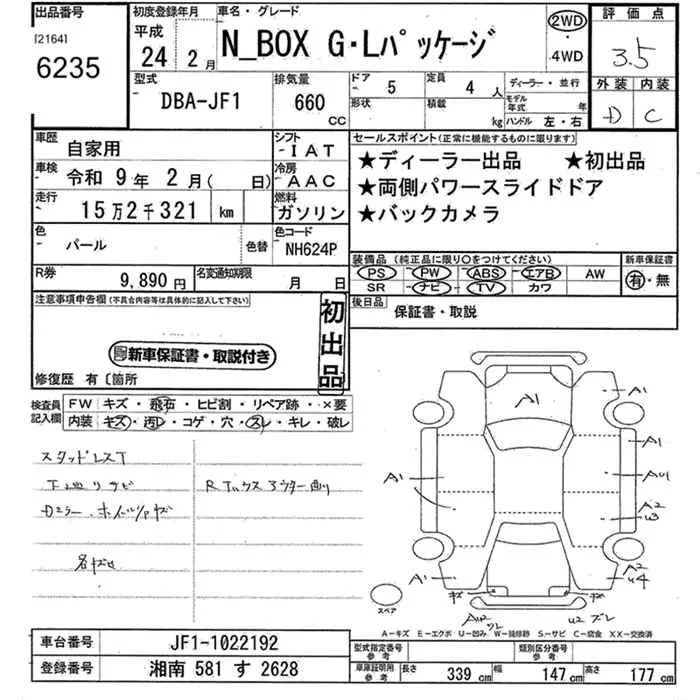 出品番号
[2164]
6235
初度登録年月
平成
24 2月
車名・グレード
N_BOX G・Lパッケージ
2WD
4WD
評価点
3.5
外装 内装
D C
型式
DBA-JF1
排気量
660 CC
ドア 5
形状
定員 4人
積載 kg
ディーラー・並行
モデル年式 年
ハンドル 左・右
車歴 自家用
シフト IAT
車検 令和 9年 2月( 日)
冷房 AAC
走行 15万2千321 km
燃料 ガソリン
色 パール 色替
色コード NH624P
R券 9,890円
名変通知期限 月 日
セールスポイント(正常に機能するものに限ります)
★ディーラー出品 ★初出品
★両側パワースライドドア
★バックカメラ
装備品(純正品に限り○をつけてください)
PS PW ABS エアB AW
SR ナビ TV カワ
新車保証書
有・無
後日品 保証書・取説
注意事項申告欄(不具合内容等は具体的に記入して下さい)
初出品
新車保証書・取説付き
修復歴 有〔箇所
検査員記入欄
FW キズ・飛石・ヒビ割・リペア跡・×要
内装 キズ・汚レ・コゲ・穴・スレ・キレ・破レ
スタッドレスT
下廻りサビ
Dミラー・ホイルキャップキズ
各キズ
A1
A1
A1
A1
A2
U3
A1
A1
A2
U4
キズ
キズ
U2 ズレ
スペア
A−キズ E−エクボ U−凹み W−補修跡 S−サビ C−腐食 XX−交換済
車台番号 JF1-1022192
登録番号 湘南 581 す 2628
型式指定番号 参考
類別区分番号 参考
車庫証明用 参考
長さ 339cm 幅 147cm 高さ 177cm